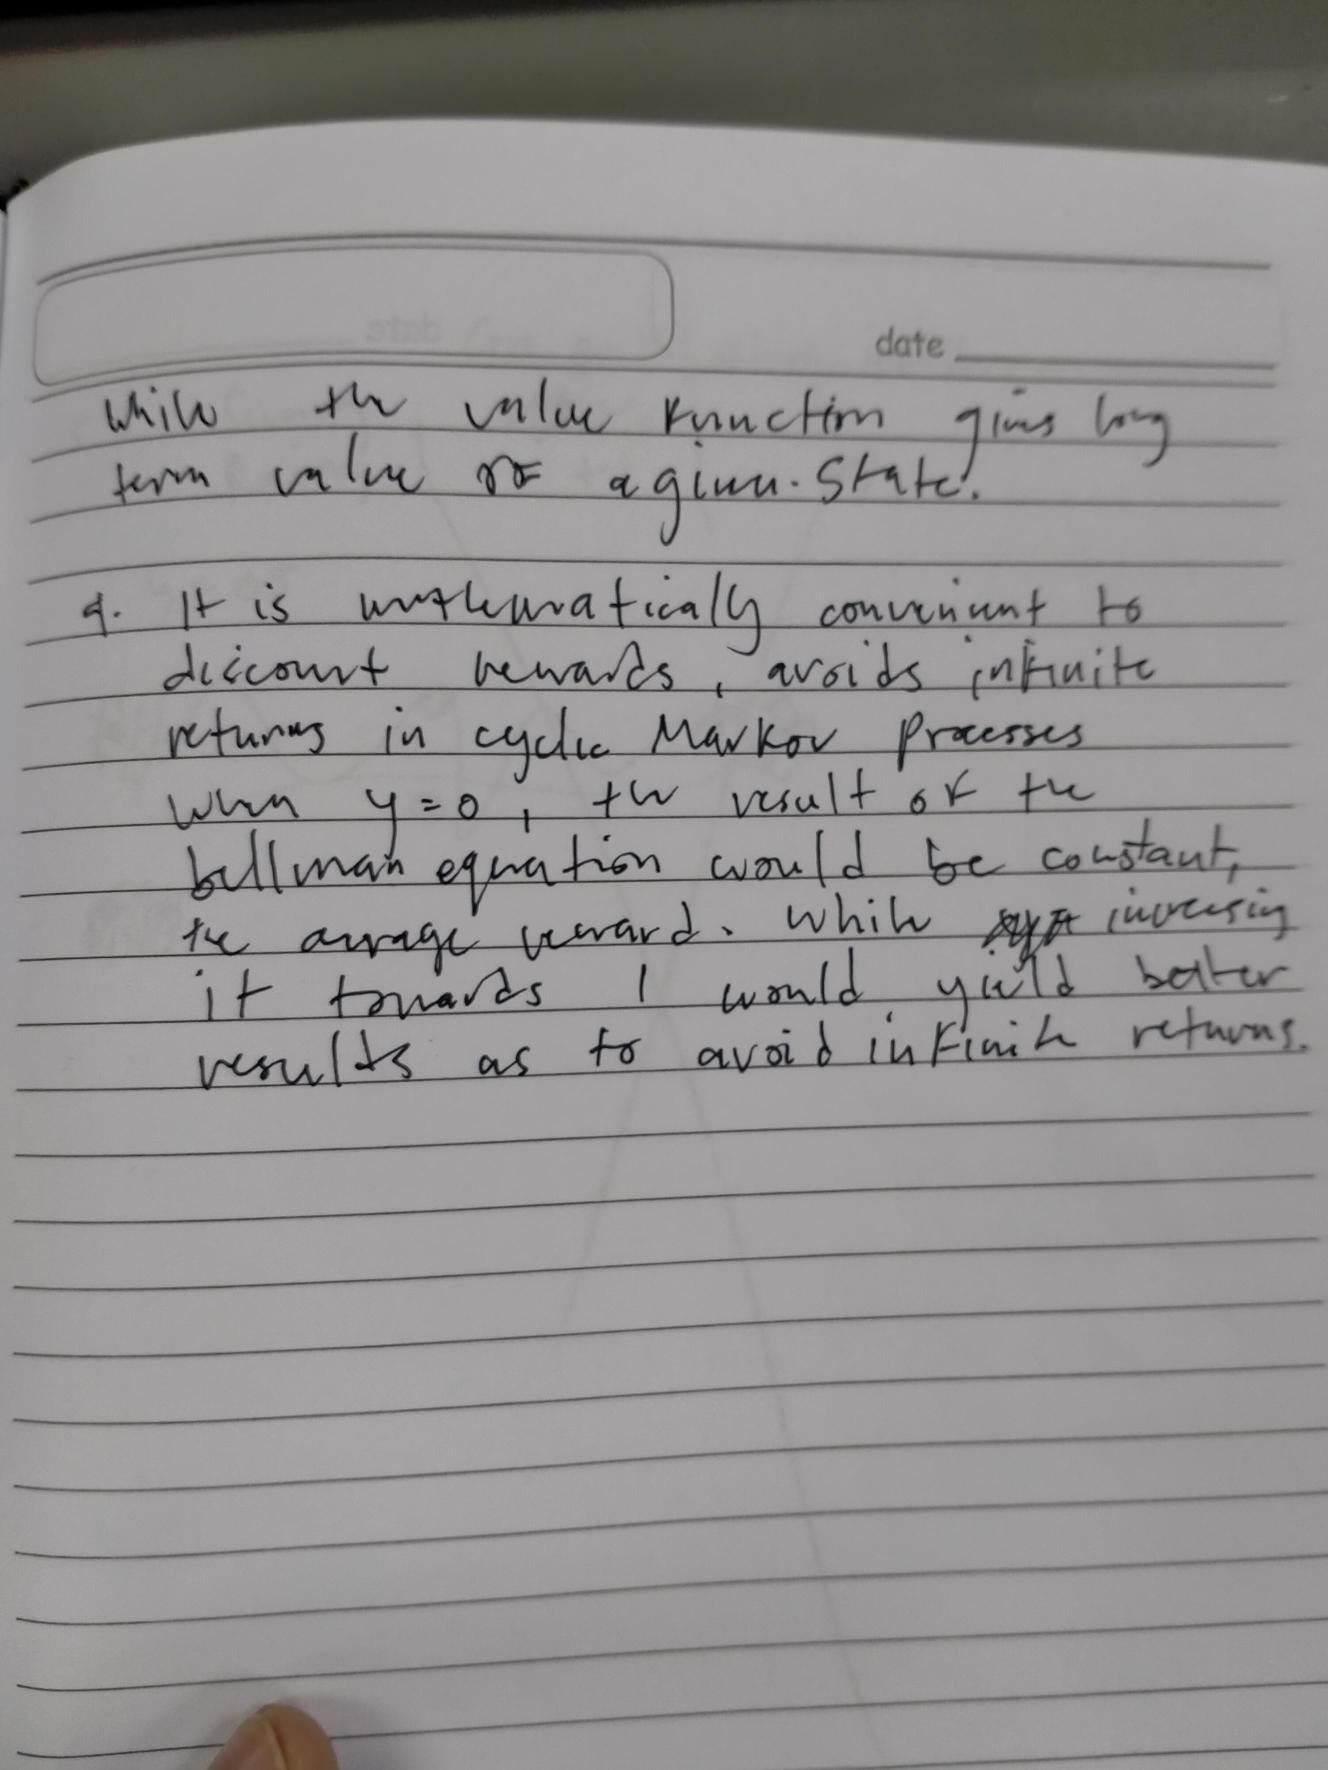 date
While the value Function gives long
term value of a given State.
9. It is mathematically convenient to
discount rewards, avoids infinite
returns in cyclic Markov Processes
When y=0, the result of the
bellman equation would be constant,
the average reward. While increasing
it towards 1 would yield better
results as to avoid infinite returns.